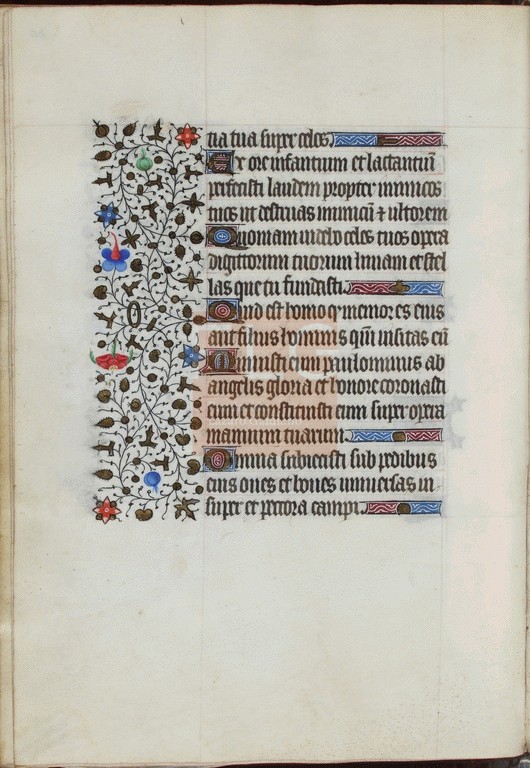 tia tua super celos
Ex ore infantium et lactantiū
perfecisti laudem propter inimicos
tuos ut destruas inimicū ⁊ ultorem
Quoniam uidebo celos tuos opera
digittorum tuorum lunam et stel
las que tu fundasti
Quid est homo q memor es eius
aut filius hominis qm̄ uisitas eū
Minuisti eum paulominus ab
angelis gloria et honore coronasti
eum et constituisti eum super opera
manuum tuarum
Omnia subiecisti sub pedibus
eius oues et boues uniuersas in
super et peccora campi